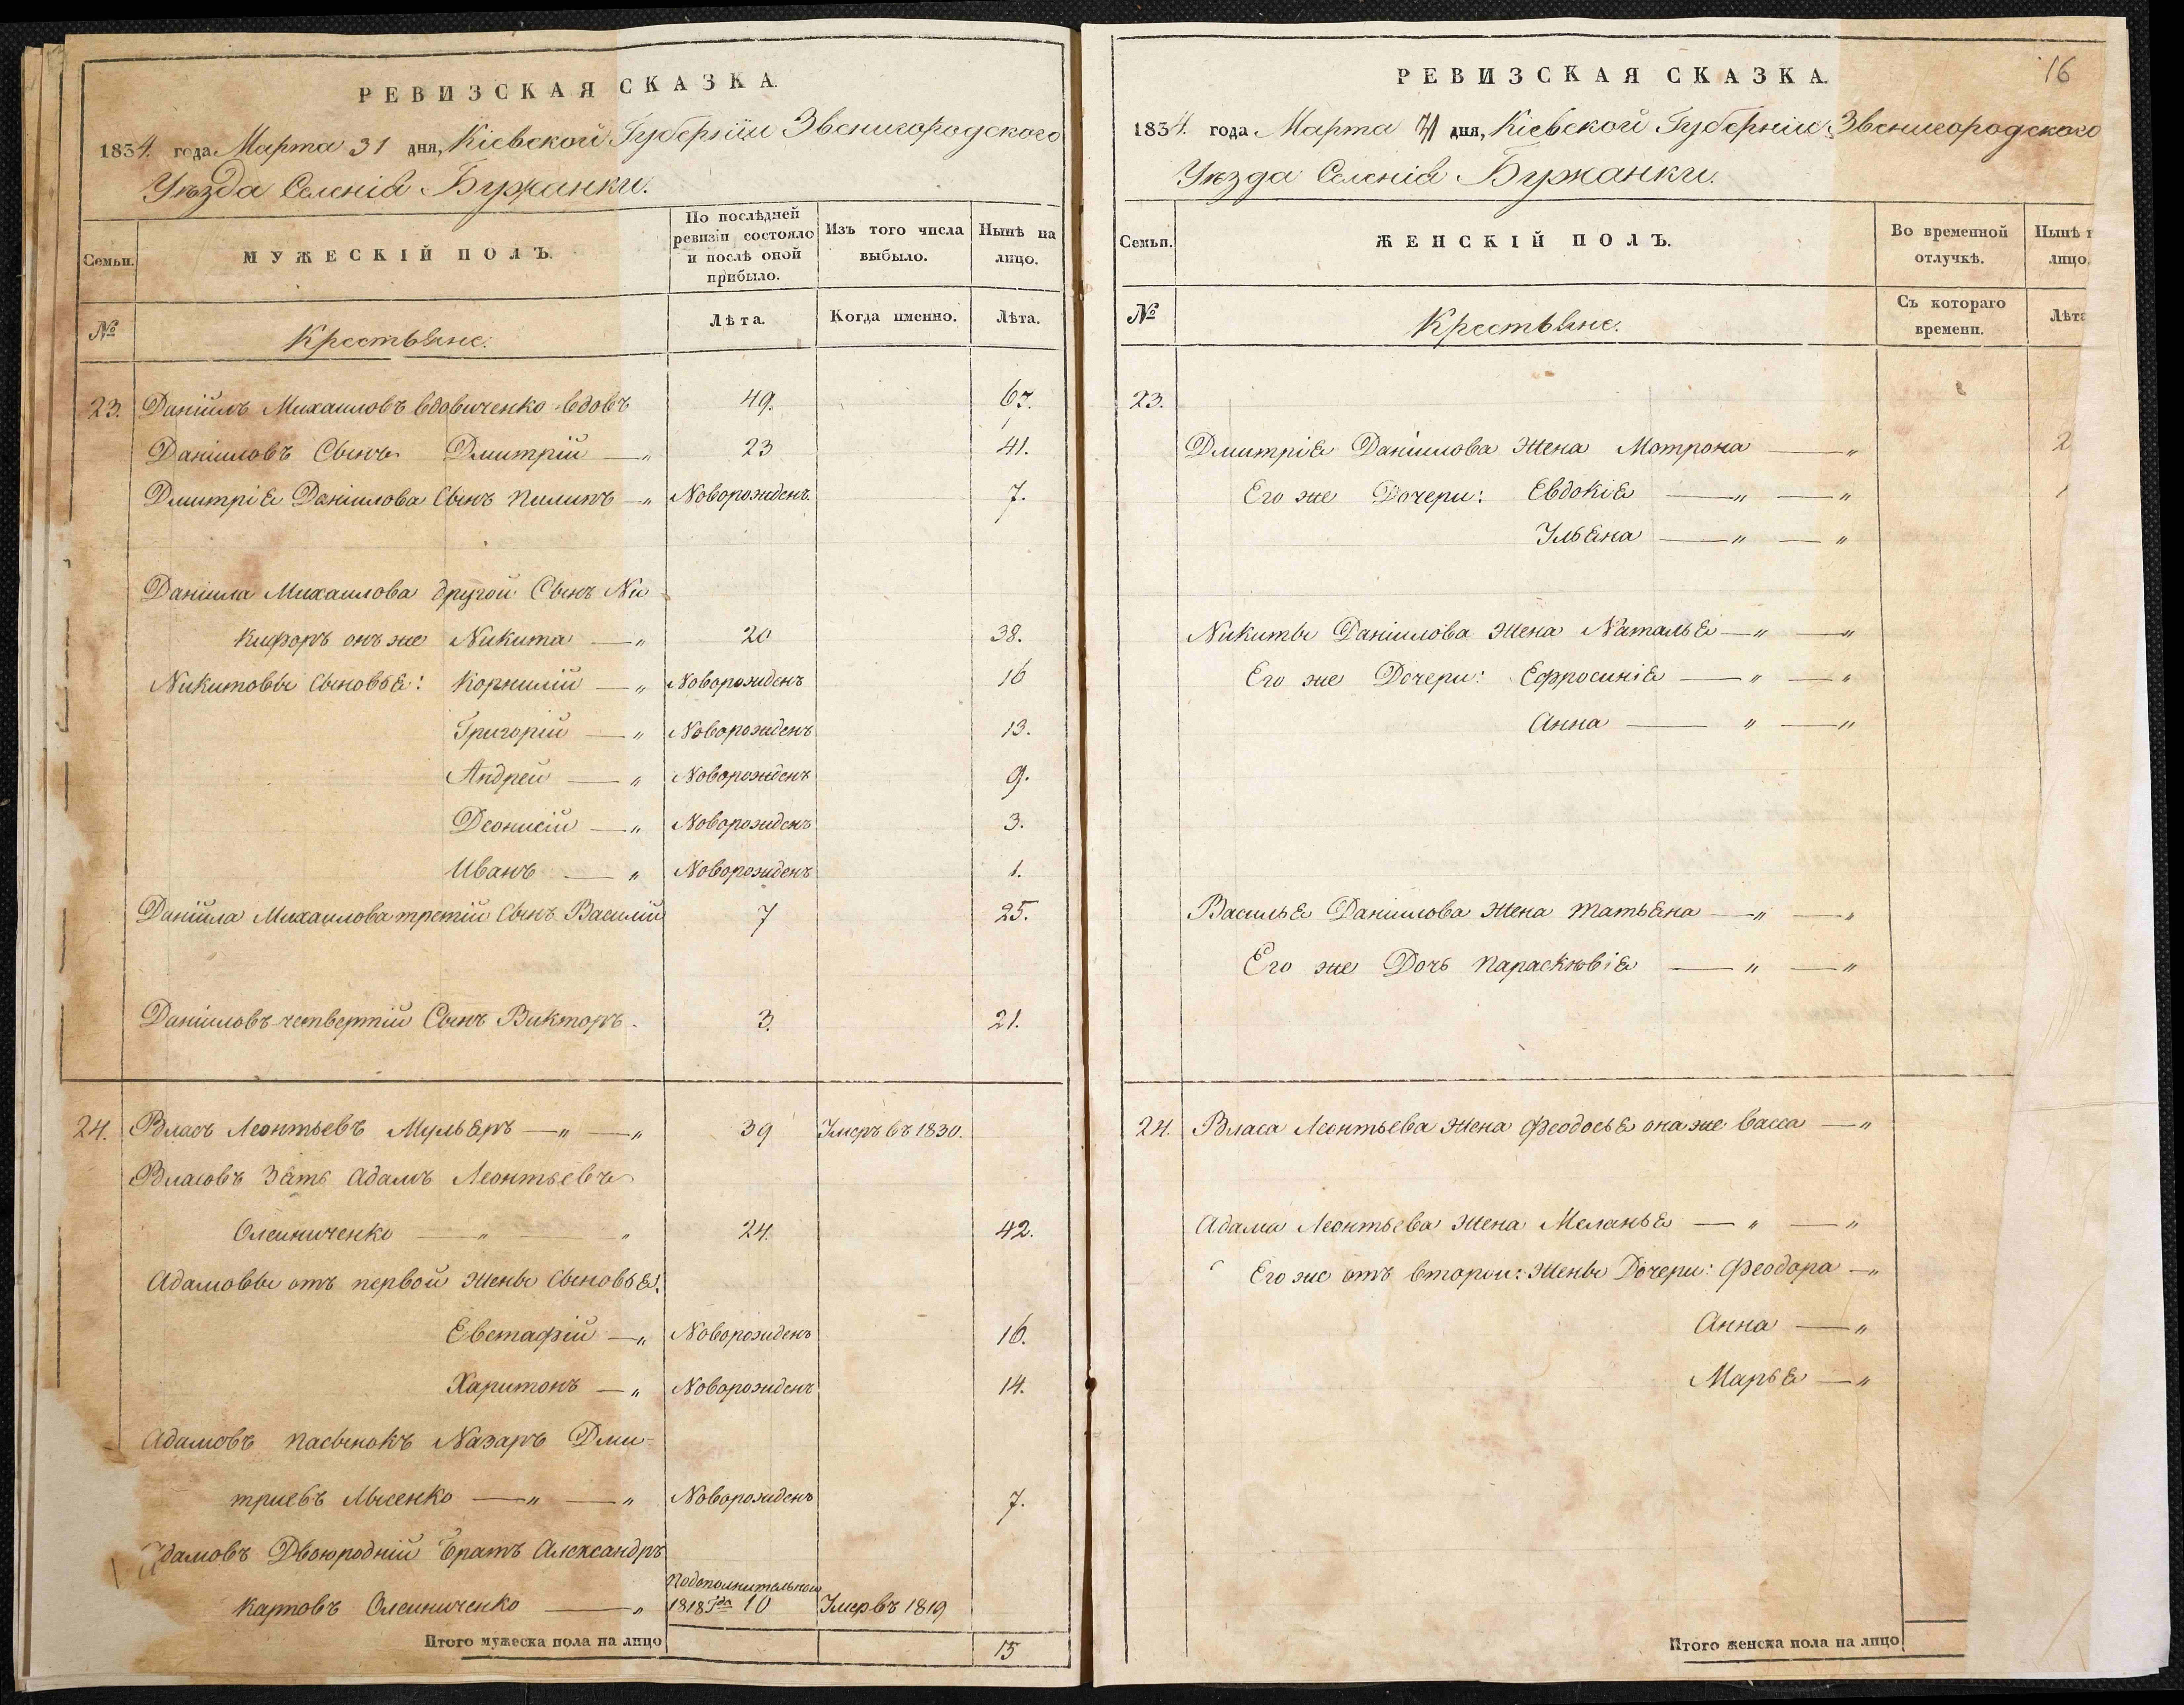 РЕВИЗСКАЯ СКАЗКА.
1834. года Марта 31 дня, Кіевской Губерніи Звенигородского
Уѣзда Селенія Бужанки.
Семьи.
МУЖЕСКІЙ ПОЛЪ.
По послѣдней ревизіи состояло и послѣ оной прибыло.
Изъ того числа выбыло.
Нынѣ на лицо.
№
Крестьяне.
Лѣта.
Когда именно.
Лѣта.
23. Даніилъ Михаиловъ вдовиченко вдовъ 49. 67.
Даніиловъ Сынъ Дмитрій —„ 23 41.
Дмитрія Даніилова Сынъ Пилипъ —„ Новорожденъ 7.
Даніила Михаилова другой Сынъ Ни
кифоръ онъ же Никита —„ 20 38.
Никитовы сыновья: Корнилій —„ Новорожденъ 16
Григорій —„ Новорожденъ 13.
Андрей —„ Новорожденъ 9.
Деонисій —„ Новорожденъ 3.
Иванъ —„ Новорожденъ 1.
Даніила Михаилова третій Сынъ Василій 7 25.
Даніиловъ четвертій Сынъ Викторъ. 3. 21.
24. Власъ Леонтьевъ Муляръ —„—„ 39 Умеръ въ 1830.
Власовъ Зять Адамъ Леонтьевъ
Олейниченко —„—„ 24. 42.
Адамовы отъ первой жены Сыновья:
Евстафій —„ Новорожденъ 16.
Харитонъ —„ Новорожденъ 14.
Адамовъ пасынокъ Назаръ Дми-
триевъ Лысенко —„—„ Новорожденъ 7.
Адамовъ Двоюродній братъ Александръ
Карповъ Олейниченко —„ Подополнительной 1818 Года 10 Умеръ въ 1819
Итого мужеска пола на лицо 15
16
РЕВИЗСКАЯ СКАЗКА.
1834. года Марта 31 дня, Кіевской Губерніи Звенигородского
Уѣзда Селенія Бужанки.
Семьи.
ЖЕНСКІЙ ПОЛЪ.
Во временной отлучкѣ.
Нынѣ
лицо.
№
Крестьяне.
Съ котораго времени.
Лѣта
23.
Дмитрія Даніилова жена Мотрона —„ 2
Его же Дочери: Евдокія —„—„
Ульяна —„—„
Никиты Даніилова жена Наталья —„—„
Его же Дочери: Ефросинія —„—„
Анна —„—„
Василья Даніилова жена Татьяна —„—„
Его же Дочь Параскѣвія —„—„
24. Власа Леонтьева жена Феодосья она же Васса —„
Адама Леонтьева жена Меланья —„—„
Его же отъ второй: жены Дочери: Феодора —„
Анна —„
Марья —„
Итого женска пола на лицо